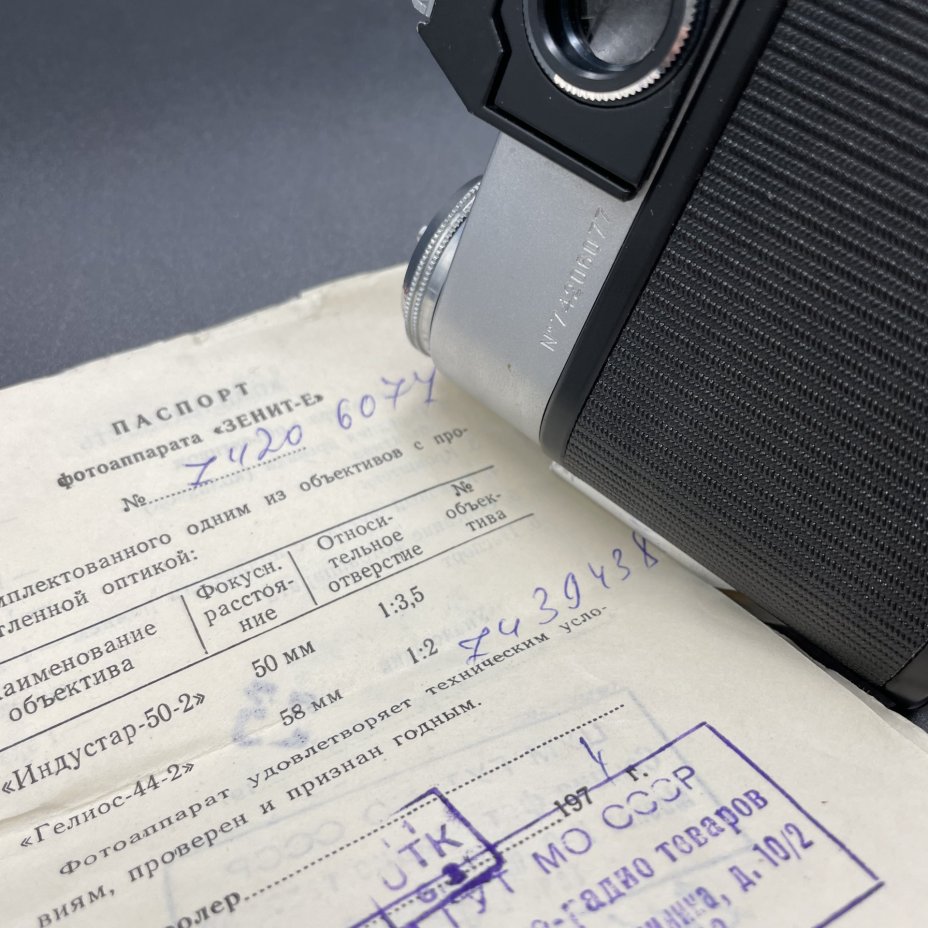 №74206077
ПАСПОРТ
фотоаппарата «ЗЕНИТ-Е»
№ 74206077
мплектованного одним из объективов с про-
тленной оптикой:
аименование объектива
Фокусн. расстоя- ние
Относи- тельное отверстие
№ объек- тива
«Индустар-50-2» 50 мм 1:3,5
«Гелиос-44-2» 58 мм 1:2 7439438
Фотоаппарат удовлетворяет техническим усло-
виям, проверен и признан годным.
олер
1974 г.
ОТК
ГУТ МО СССР
радио товаров
д. 10/2